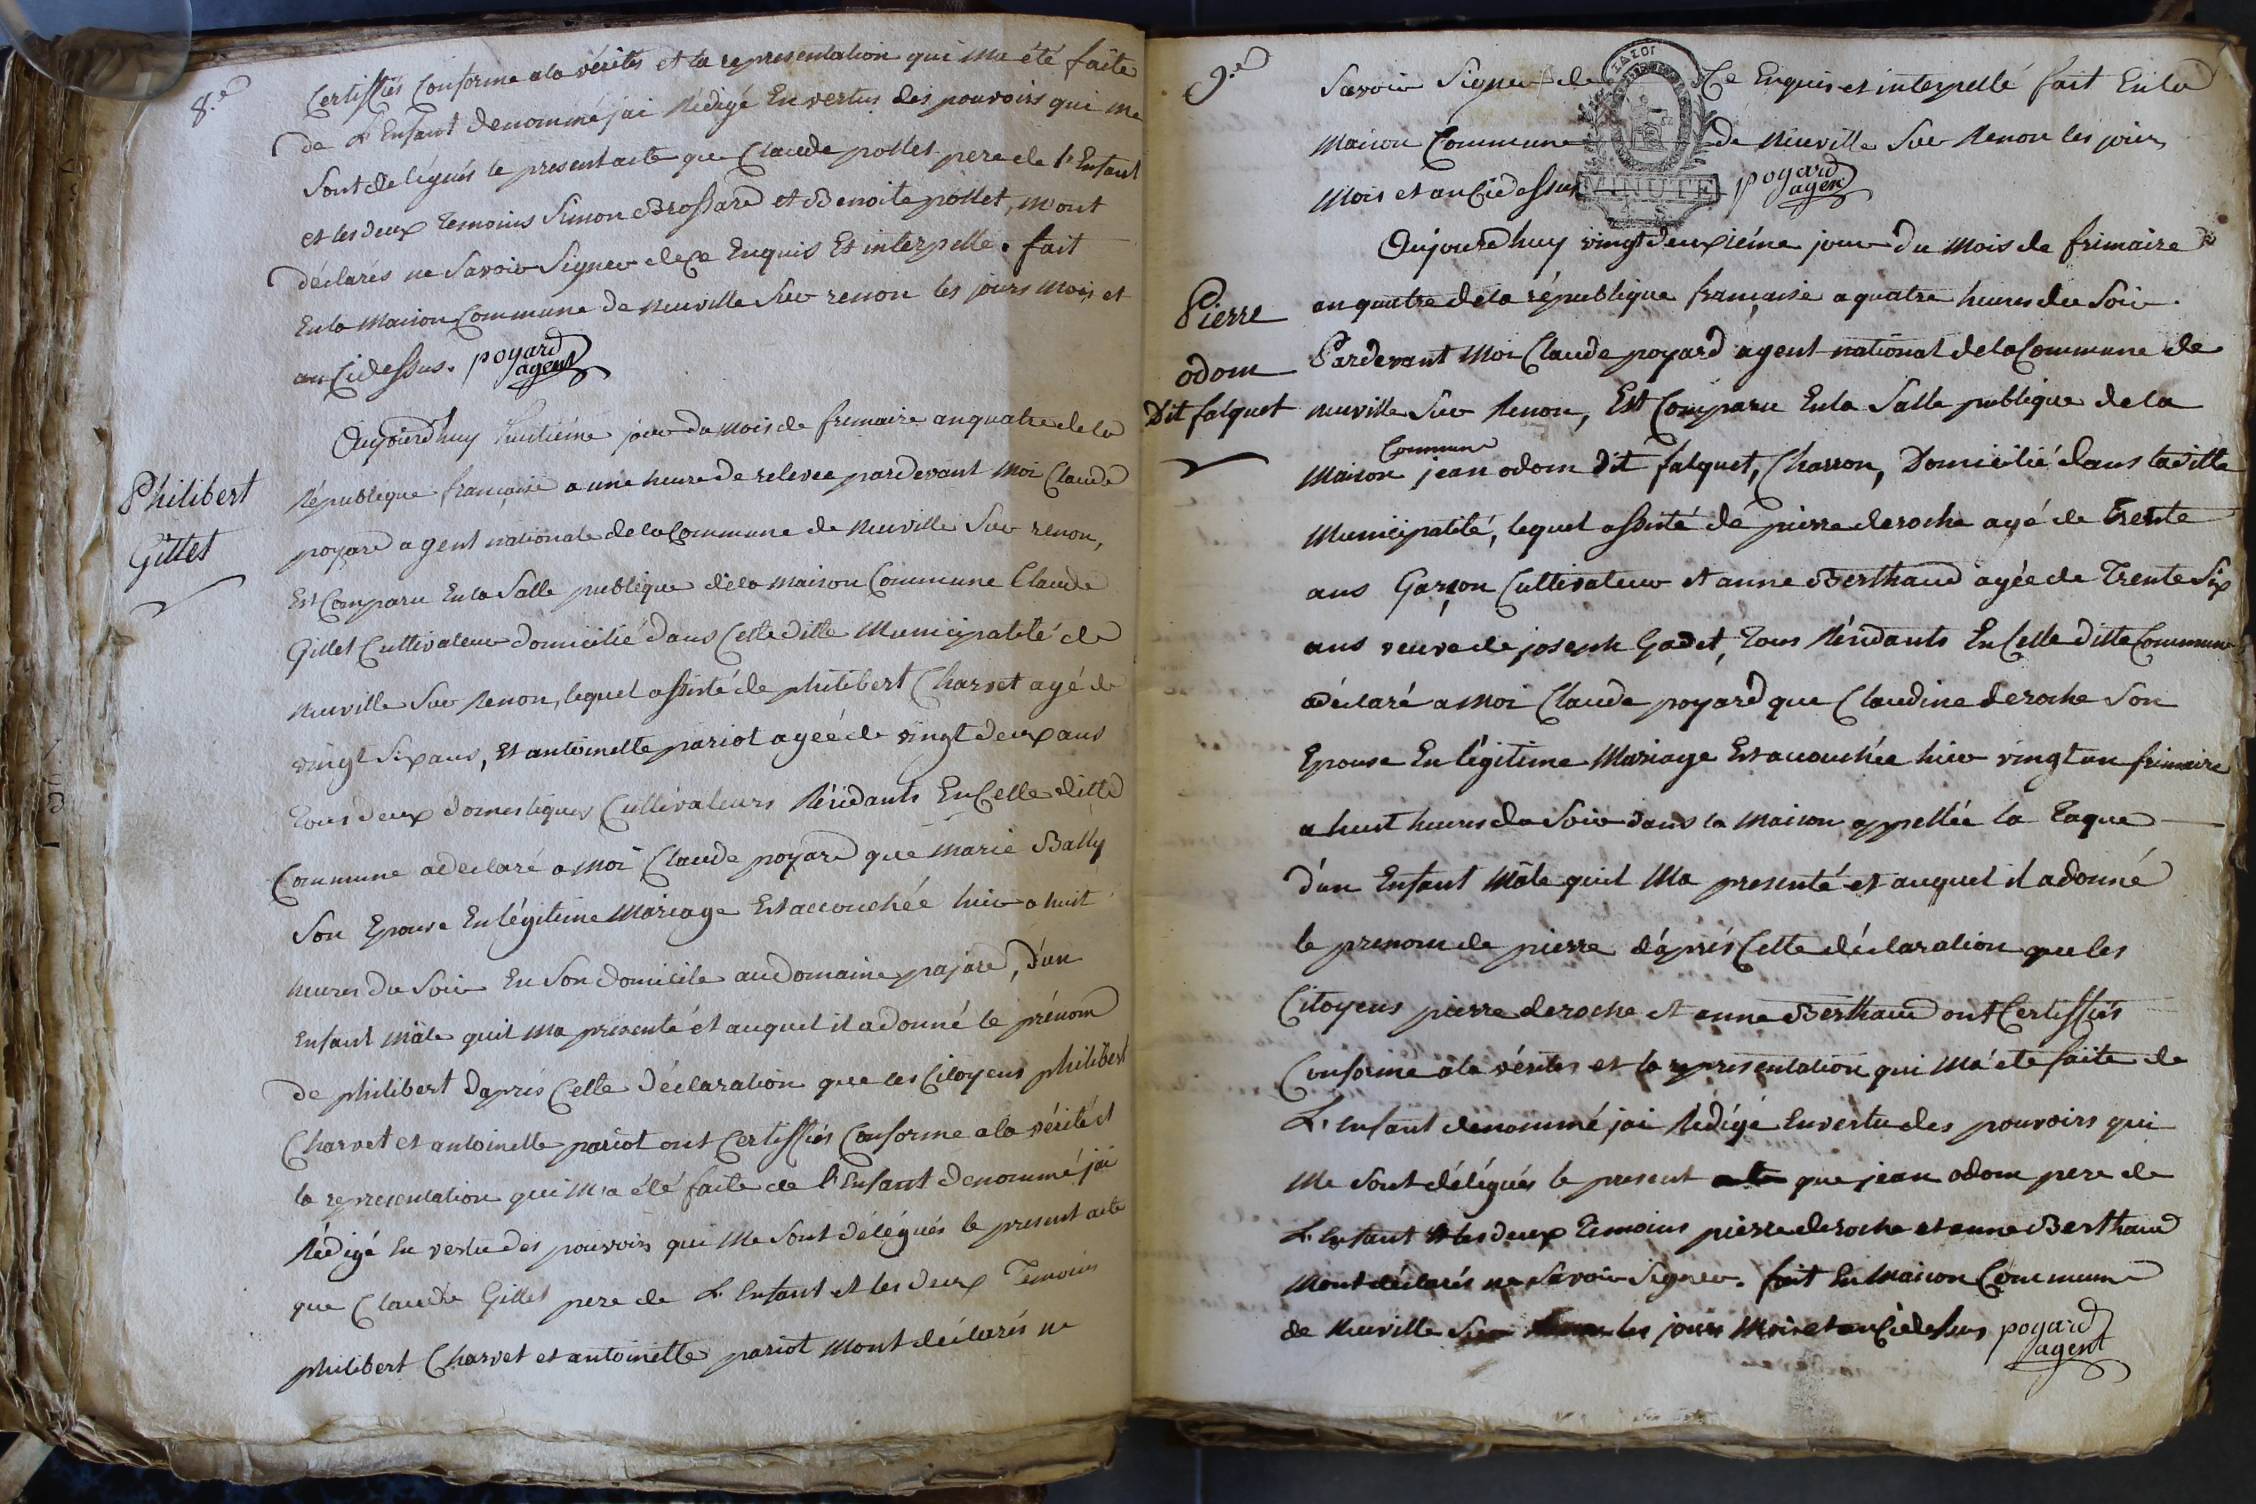 8.e
Certiffiés Conforme a la vérités et la representation qui ma été faite
de L'Enfant denommé jai Rédigé En vertus des pouvoirs qui me
sont delégués le present acte que Claude pollet pere de l'Enfant
et les deux Temoins Simon Brossard et Benoite pollet, m'ont
déclarés ne Savoir Signer de ce Enquis Et interpellé. fait
En la Maison Commune de Neuville Sur renon les jours mois et
an Cidessus. poyard
agent
Aujourd'huy huitiéme jour du mois de frimaire an quatre de la
Philibert
Gillet
République française a une heure de relevee pardevant Moi Claude
poyard agent nationale de la Commune de Neuville Sur renon,
Est Comparu En la Salle publique de la maison Commune Claude
Gillet Cultivateur domicilié dans Cette ditte Municipalité de
Neuville Sur Renon, lequel assisté de philibert Charvet agé de
vingt Six ans, Et antoinette pariot agée de vingt deux ans
Tous deux domestiques Cultivateurs Résidants En Cette ditte
Commune a declaré a moi Claude poyard que marie Bally
Son Epouse En légitime Mariage Est accouchée hier a huit
heures du Soir En Son domicile au domaine pajard, d'un
Enfant mâle quil ma présenté et auquel il a donné le prénom
de philibert d'aprés Cette déclaration que les Citoyens philibert
Charvet et antoinette pariot ont Certiffiés Conforme a la vérité et
la representation qui m'a été faite de l'Enfant denommé jai
Rédigé En vertu des pouvoirs qui me Sont délégués le present acte
que Claude Gillet pere de L'Enfant et les deux Temoins
philibert Charvet et antoinette pariot mont déclarés ne
9.e
Savoir Signer de Ce Enquis et interpellé fait En la
Maison Commune de Neuville Sur Renon les jours
Mois et an Cidessus poyard
agent
MINUTE
Aujourd'huy vingt deuxiéme jour du mois de frimaire
Pierre
odom
Dit falquet
an quatre de la république française a quatre heures du Soir
Pardevant Moi Claude poyard agent national de la Commune de
Neuville Sur Renon, Est Comparu En la Salle publique de la
Commune
Maison jean odom dit falquet, Charron, Domicilié dans la ditte
Municipalité, lequel assisté de pierre deroche agé de trente
ans Garçon Cultivateur et anne Berthaud agée de Trente Six
ans veuve de joseph Gadet, Tous Résidants En Cette ditte Commune
a Déclaré a moi Claude poyard que Claudine deroche Son
Epouse En légitime Mariage Est accouchée hier vingt un frimaire
a huit heures du Soir dans la maison appellée la
d'un Enfant Mâle quil Ma presenté et auquel il a donné
le prenom de pierre d'aprés Cette déclaration que les
Citoyens pierre deroche et anne Berthaud ont Certiffiés
Conforme a la vérités et la representation qui Ma été faite de
L'Enfant denommé jai Rédigé En vertu des pouvoirs qui
Me Sont délégués le present acte que jean odom pere de
L'Enfant et les deux Temoins pierre deroche et anne Berthaud
Mont déclarés ne Savoir Signer. fait En Maison Commune
de Neuville Sur les jours Mois et an Cidessus poyard
agent